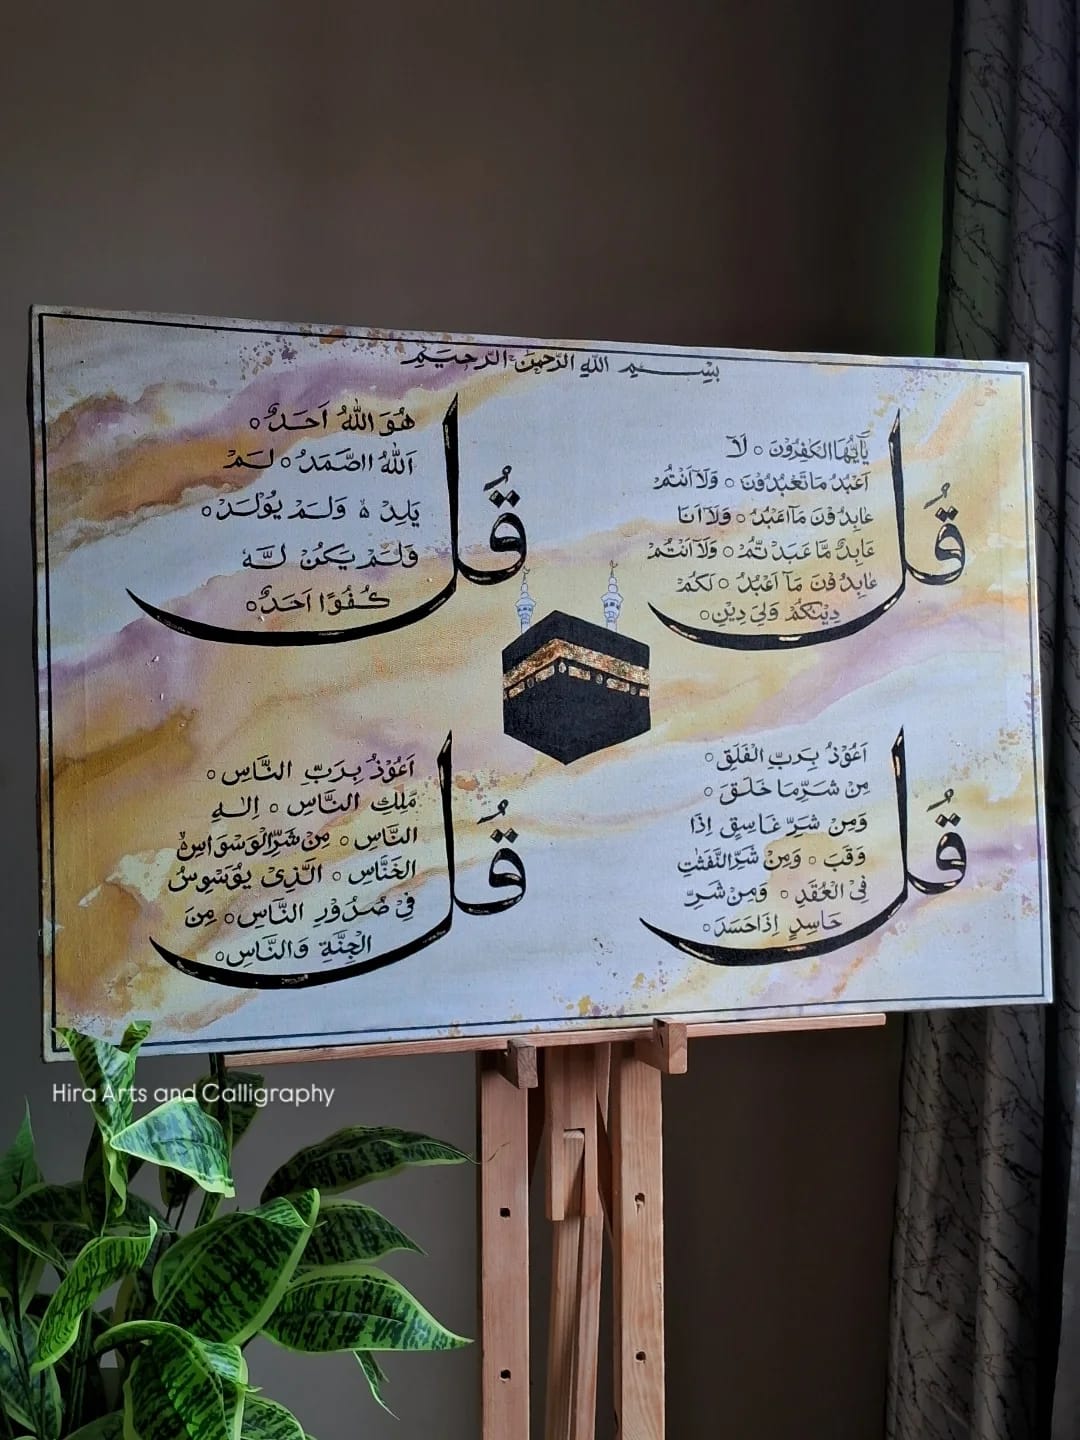 بِسْــــمِ اللّٰهِ الرَّحْمٰنِ الرَّحِيْمِ
قُلْ
يٰٓاَيُّهَا الْكٰفِرُوْنَ ○ لَآ
اَعْبُدُ مَا تَعْبُدُوْنَ ○ وَلَآ اَنْتُمْ
عٰبِدُوْنَ مَآ اَعْبُدُ ○ وَلَآ اَنَا
عَابِدٌ مَّا عَبَدْتُّمْ ○ وَلَآ اَنْتُمْ
عٰبِدُوْنَ مَآ اَعْبُدُ ○ لَكُمْ
دِيْنُكُمْ وَلِيَ دِيْنِ ○
قُلْ
هُوَ اللّٰهُ اَحَدٌ ○
اَللّٰهُ الصَّمَدُ ○ لَمْ
يَلِدْ ۙ وَلَمْ يُوْلَدْ ○
وَلَمْ يَكُنْ لَّهٗ
كُفُوًا اَحَدٌ ○
قُلْ
اَعُوْذُ بِرَبِّ الْفَلَقِ ○
مِنْ شَرِّ مَا خَلَقَ ○
وَمِنْ شَرِّ غَاسِقٍ اِذَا
وَقَبَ ○ وَمِنْ شَرِّ النَّفّٰثٰتِ
فِى الْعُقَدِ ○ وَمِنْ شَرِّ
حَاسِدٍ اِذَا حَسَدَ ○
قُلْ
اَعُوْذُ بِرَبِّ النَّاسِ ○
مَلِكِ النَّاسِ ○ اِلٰهِ
النَّاسِ ○ مِنْ شَرِّ الْوَسْوَاسِ ۙ
الْخَنَّاسِ ○ الَّذِىْ يُوَسْوِسُ
فِيْ صُدُوْرِ النَّاسِ ○ مِنَ
الْجِنَّةِ وَالنَّاسِ ○
Hira Arts and Calligraphy